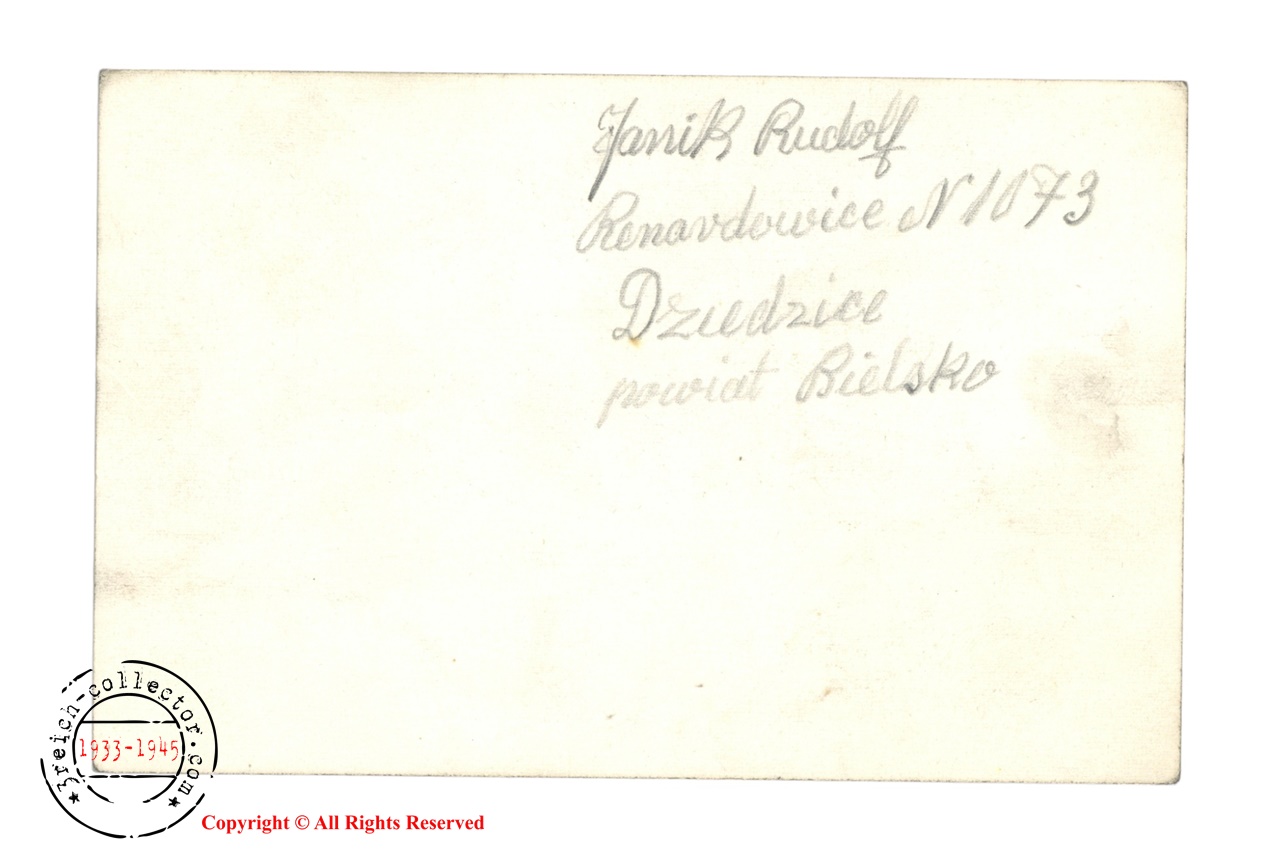 Janik Rudolf
Renardowice N 1073
Dziedzice
powiat Bielsko
3reich-collector.com
1933-1945
Copyright © All Rights Reserved